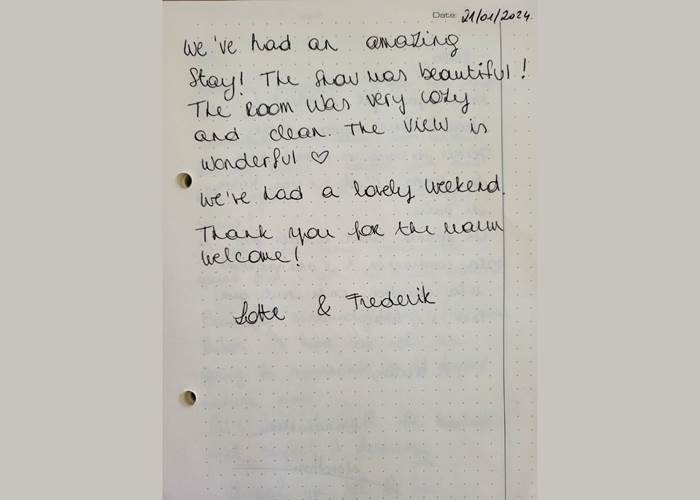 Date: 21/01/2024.
We've had an amazing
stay! The snow was beautiful!
The room was very cozy
and clean. The view is
wonderful ♡
We've had a lovely weekend.
Thank you for the warm
welcome!
Lotte & Frederik